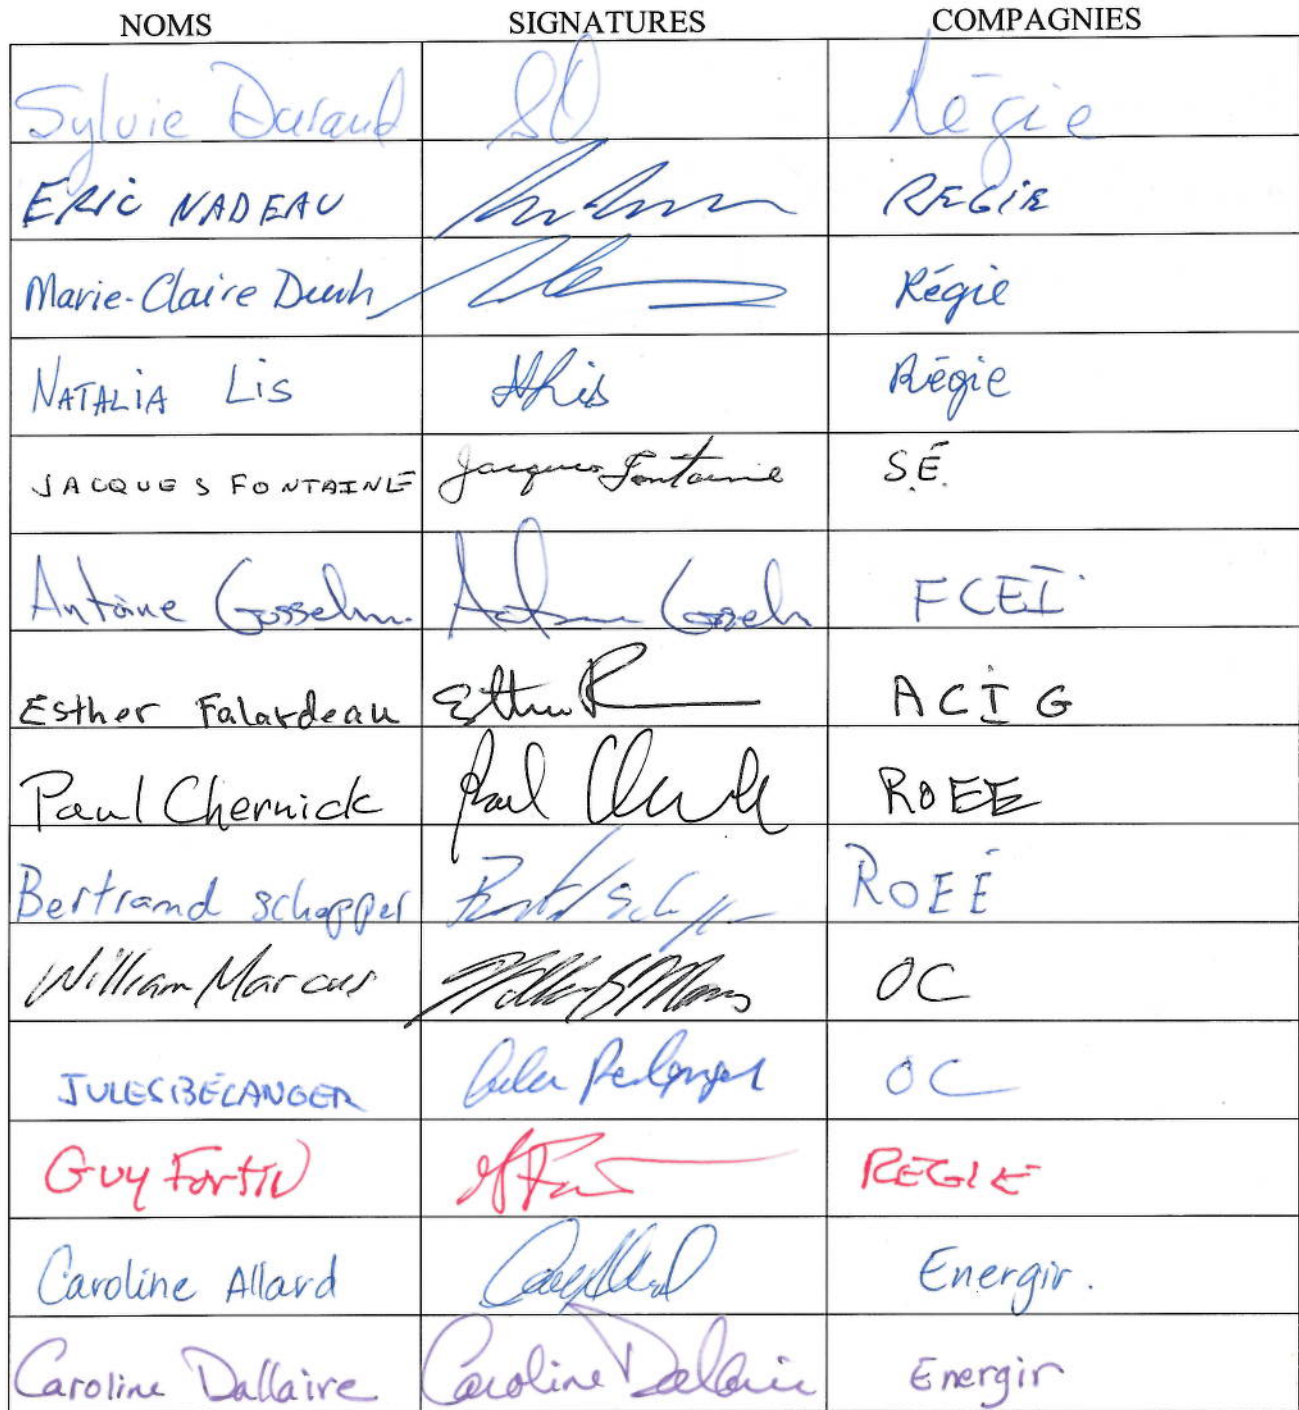 NOMS SIGNATURES COMPAGNIES
Sylvie Durand SD Régie
ERIC NADEAU REGIE
Marie-Claire Régie
NATALIA Lis Régie
JACQUES FONTAINE Jacques Fontaine S.É.
Antoine Gosselin FCEI
Esther Falardeau Esther ACIG
Paul Chernick Paul ROEE
Bertrand schepper ROEÉ
William Marcus OC
JULES BÉLANGER OC
GUY FORTIN REGIE
Caroline Allard Energir.
Caroline Dallaire Caroline Dallaire Energir